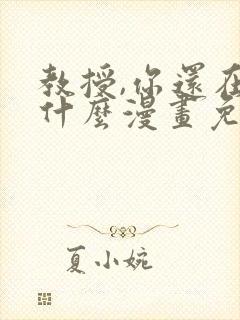 教授,你還在
什麼漫畫免
夏小婉